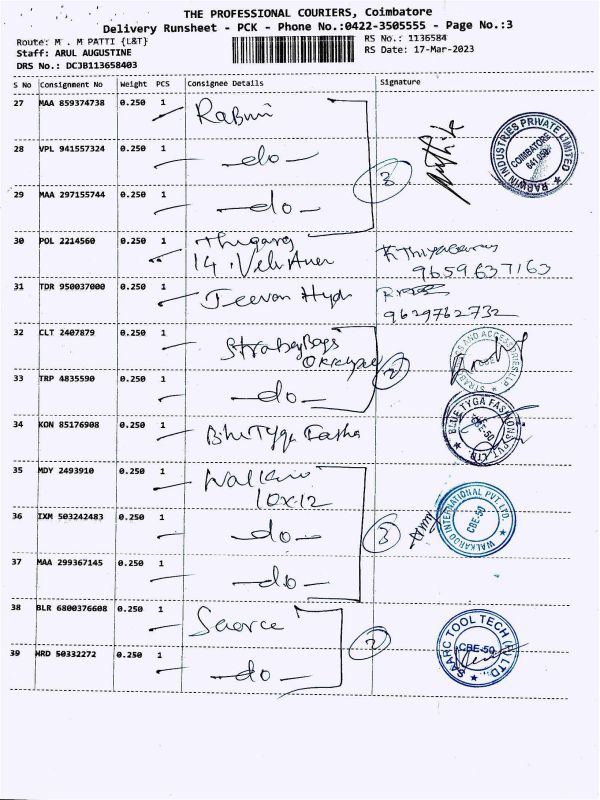 THE PROFESSIONAL COURIERS, Coimbatore
Delivery Runsheet - PCK - Phone No.:0422-3505555 - Page No.:3
Route: M . M PATTI {L&T}
RS No.: 1136584
Staff: ARUL AUGUSTINE
RS Date: 17-Mar-2023
DRS No.: DCJB113658403
S No Consignment No Weight PCS Consignee Details Signature
27 MAA 859374738 0.250 1
28 VPL 941557324 0.250 1 -do-
3
RABWIN INDUSTRIES PRIVATE LIMITED
COIMBATORE
29 MAA 297155744 0.250 1 -do-
30 POL 2214560 0.250 1
14,
9659637163
31 TDR 950037000 0.250 1 Jeevan
9629762732
32 CLT 2407879 0.250 1
2
33 TRP 4835590 0.250 1 -do-
34 KON 85176908 0.250 1 Blue Tyga
BLUE TYGA FASHIONS PVT. LTD.
CBE-50
35 MDY 2493910 0.250 1
10x12
36 IXM 503242483 0.250 1 -do-
3
WALKAROO INTERNATIONAL PVT. LTD.
CBE-50
37 MAA 299367145 0.250 1 -do-
38 BLR 6800376608 0.250 1
2
SAARC TOOL TECH (P) LTD
CBE-50
39 HRD 50332272 0.250 1 -do-